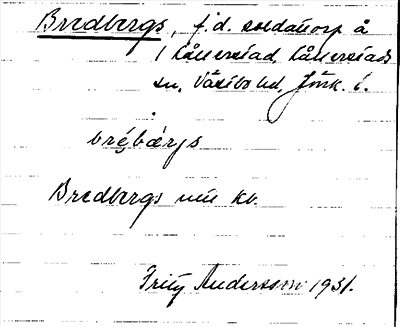 Bredbergs, f.d. soldattorp å
1 Lållerstad, Lållerstads
sn, Västbo hd, Jönk. l.
brébærjs
Bredbergs nm kv.
Fritz Andersson 1931.